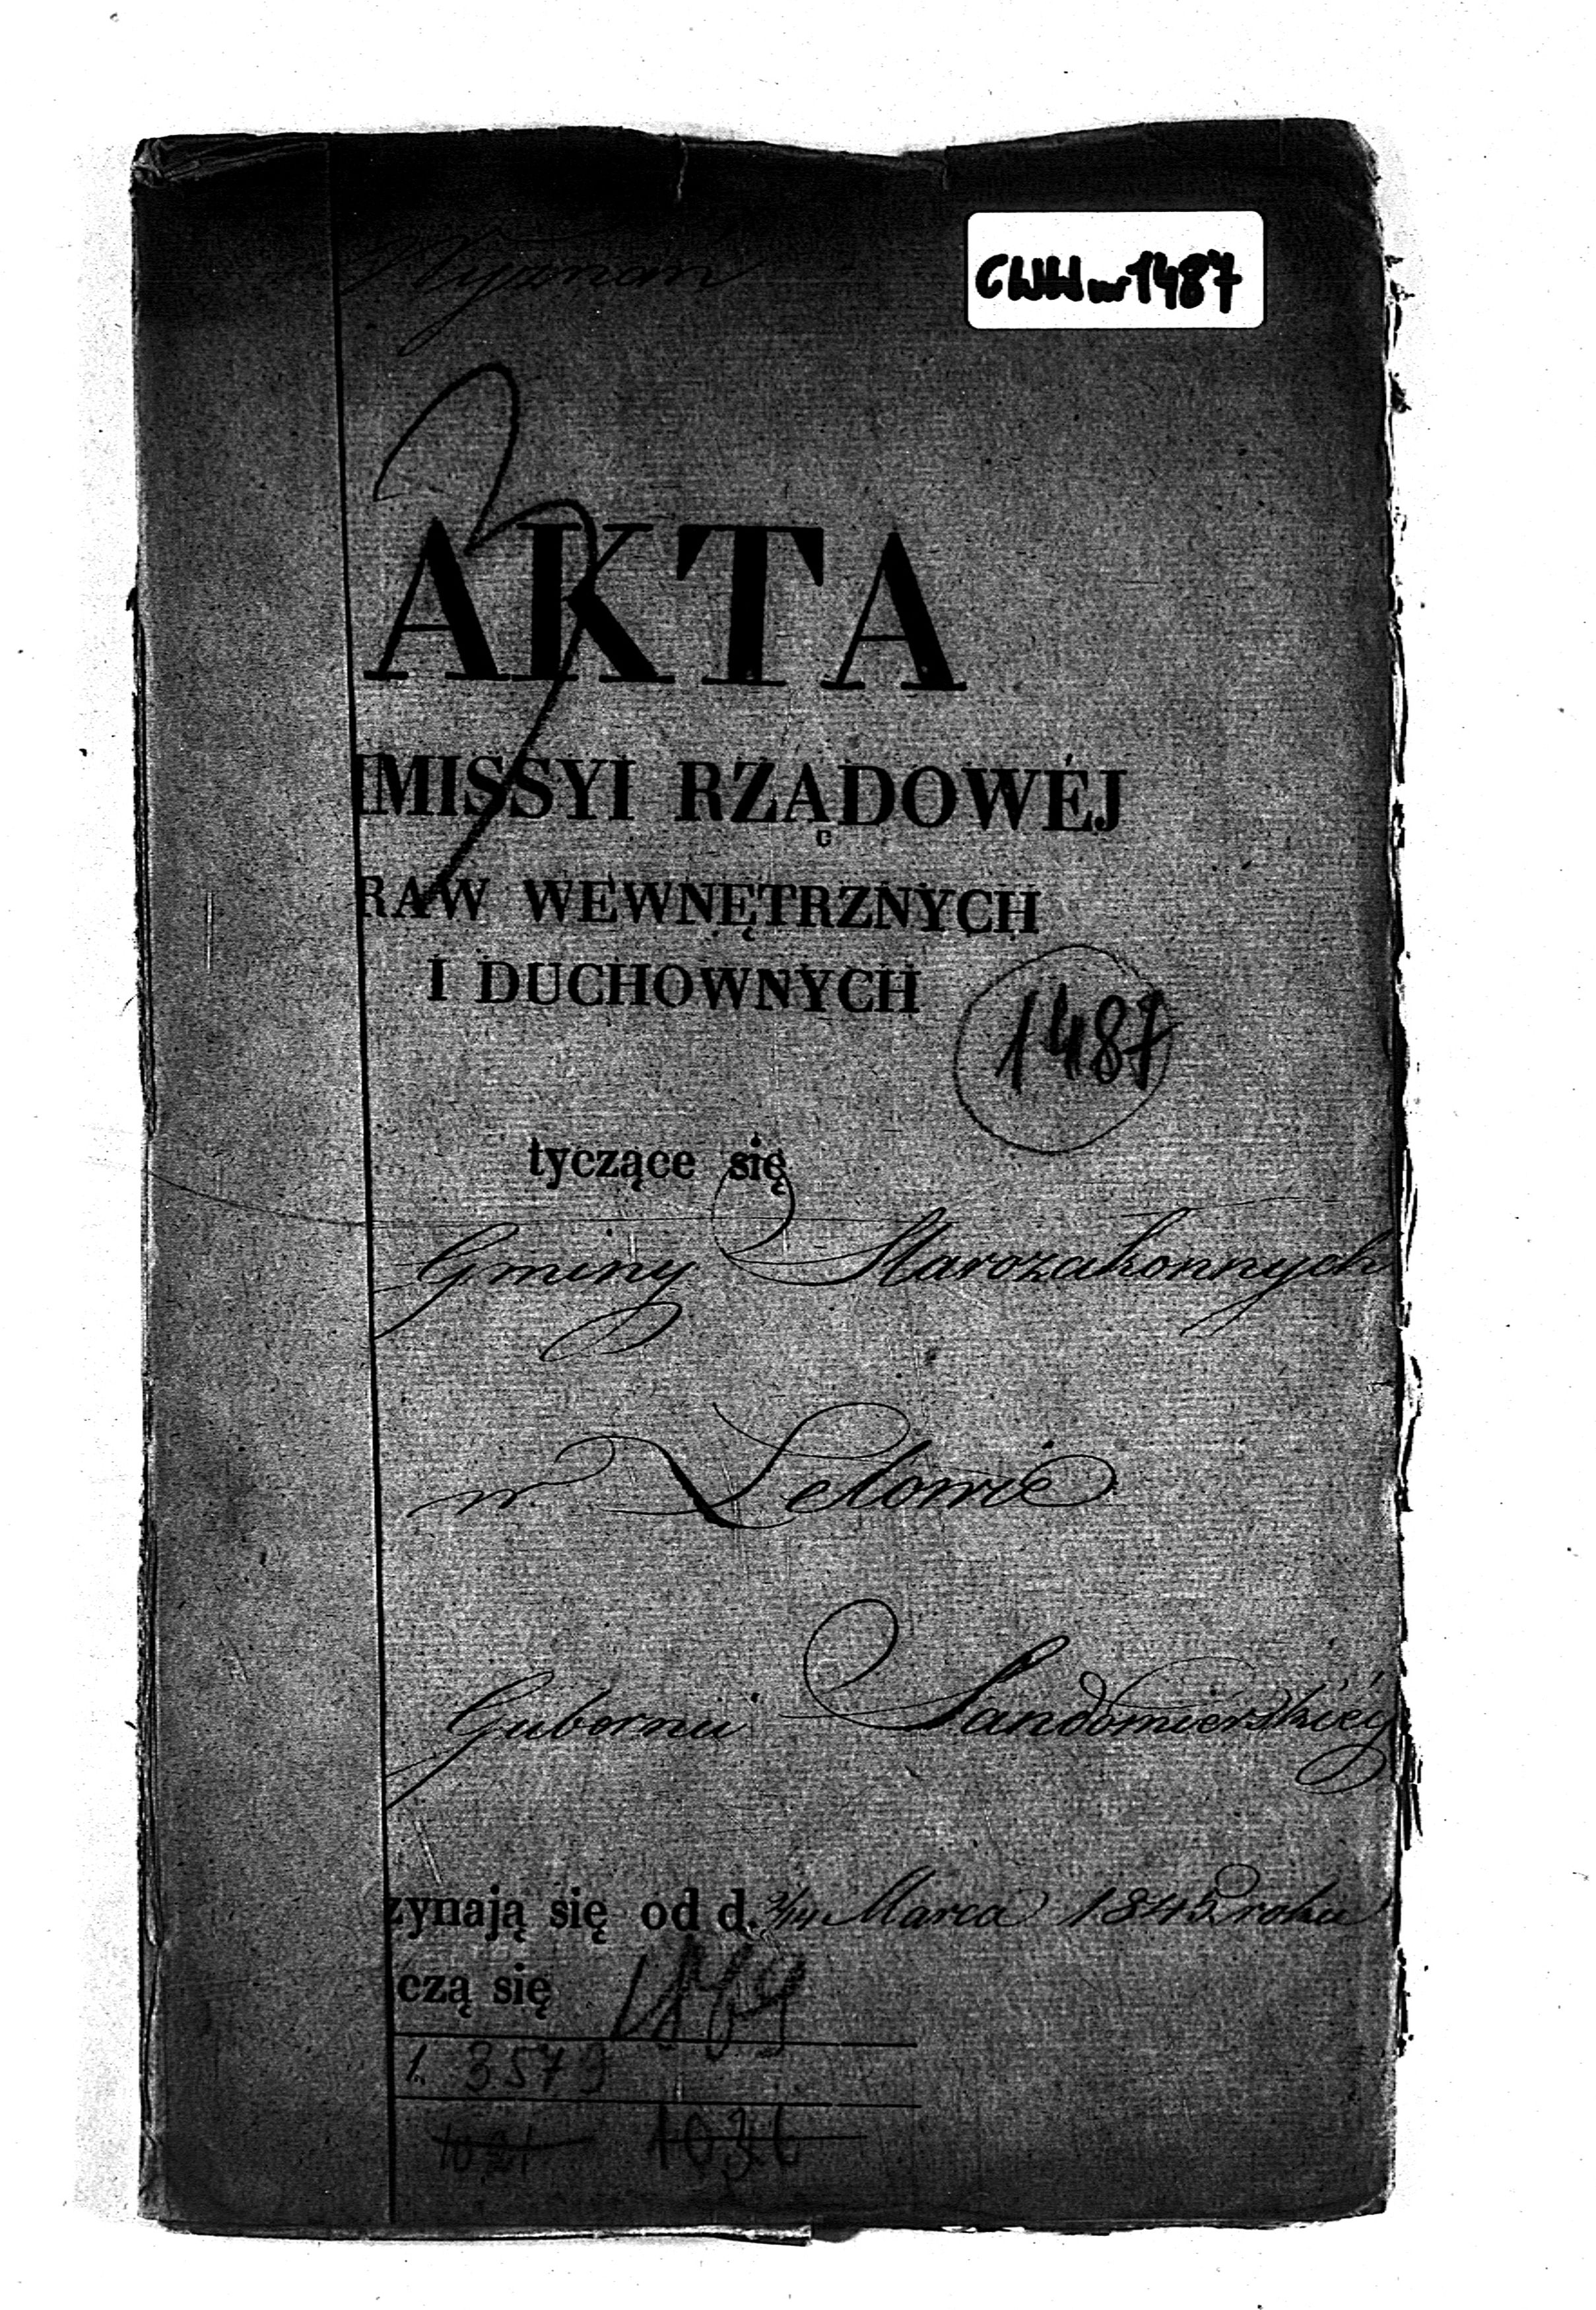 Wyznań
CWW nr 1487
AKTA
MISSYI RZĄDOWÉJ
RAW WEWNĘTRZNYCH
I DUCHOWNYCH
1487
tyczące się
Gminy Starozakonnych
w Lelowie
Gubernii Sandomierskiéy
zynają się od d. 2/14 Marca 1845 roku
czą się
1. 3579
1031 1036